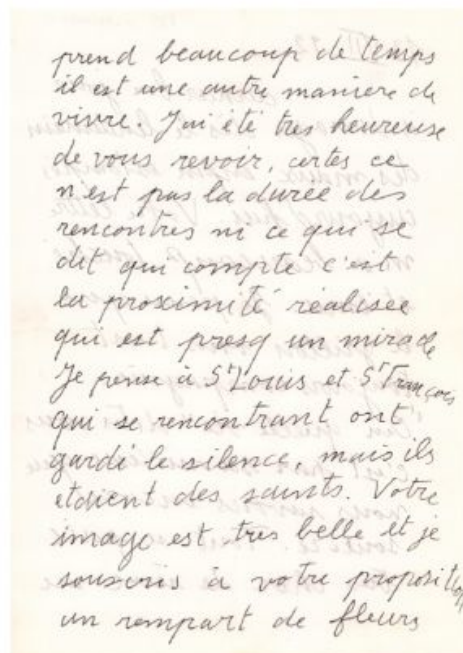 prend beaucoup de temps
il est une autre manière de
vivre. J'ai été très heureuse
de vous revoir, certes ce
n'est pas la durée des
rencontres ni ce qui se
dit qui compte c'est
la proximité réalisée
qui est presq un miracle
Je pense à St Louis et St François
qui se rencontrant ont
gardé le silence, mais ils
étaient des saints. Votre
image est très belle et je
souscris à votre proposition
un rempart de fleurs